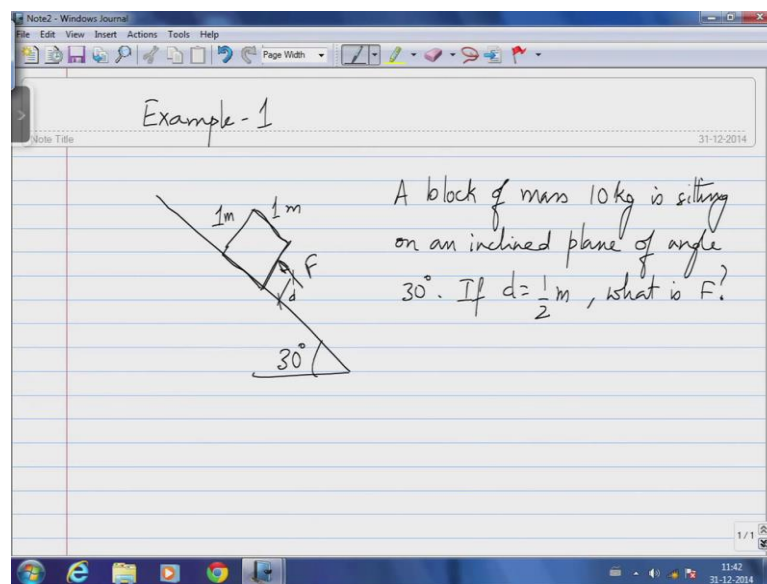 Note2 - Windows Journal
File Edit View Insert Actions Tools Help
Page Width
Example-1
Note Title
31-12-2014
1m 1m
F
d
30°
A block of mass 10kg is sitting
on an inclined plane of angle
30°. If d=1/2 m, what is F?
1/1
11:42
31-12-2014